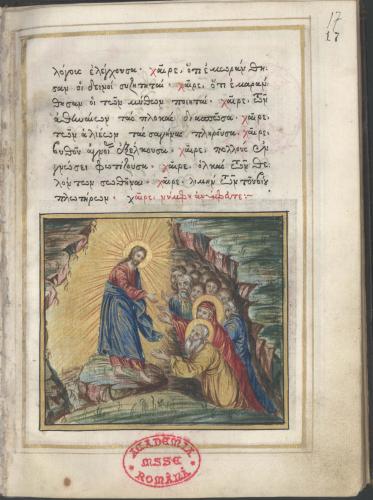 17
17
λόγους ἐλέγχουσα· χαῖρε, ὅτι ἐμωράνθη
σαν οἱ δεινοὶ συζητηταί· χαῖρε, ὅτι ἐμαράν
θησαν οἱ τῶν μύθων ποιηταί· χαῖρε, τῶν
ἀθηναίων τὰς πλοκὰς διασπῶσα· χαῖρε,
τῶν ἁλιέων τὰς σαγήνας πληροῦσα· χαῖρε,
βυθοῦ ἀγνοίας ἐξέλκουσα· χαῖρε, πολλοὺς ἐν
γνώσει φωτίζουσα· χαῖρε, ὁλκὰς τῶν θε
λόντων σωθῆναι· χαῖρε, λιμὴν τῶν τοῦ βίου
πλωτήρων· χαῖρε, νύμφη ἀνύμφευτε:-
ACADEMIA
MSSE
ROMÂNĂ